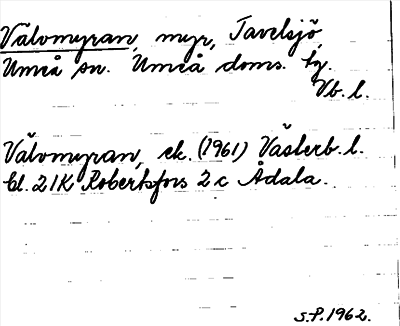 Välvomyran, myr, Tavelsjö,
Umeå sn. Umeå doms. hg.
Vb. l.
Välvomyran, ek. (1961) Västerb. l.
bl. 21K Robertsfors 2 c Ådala.
S.P. 1962.